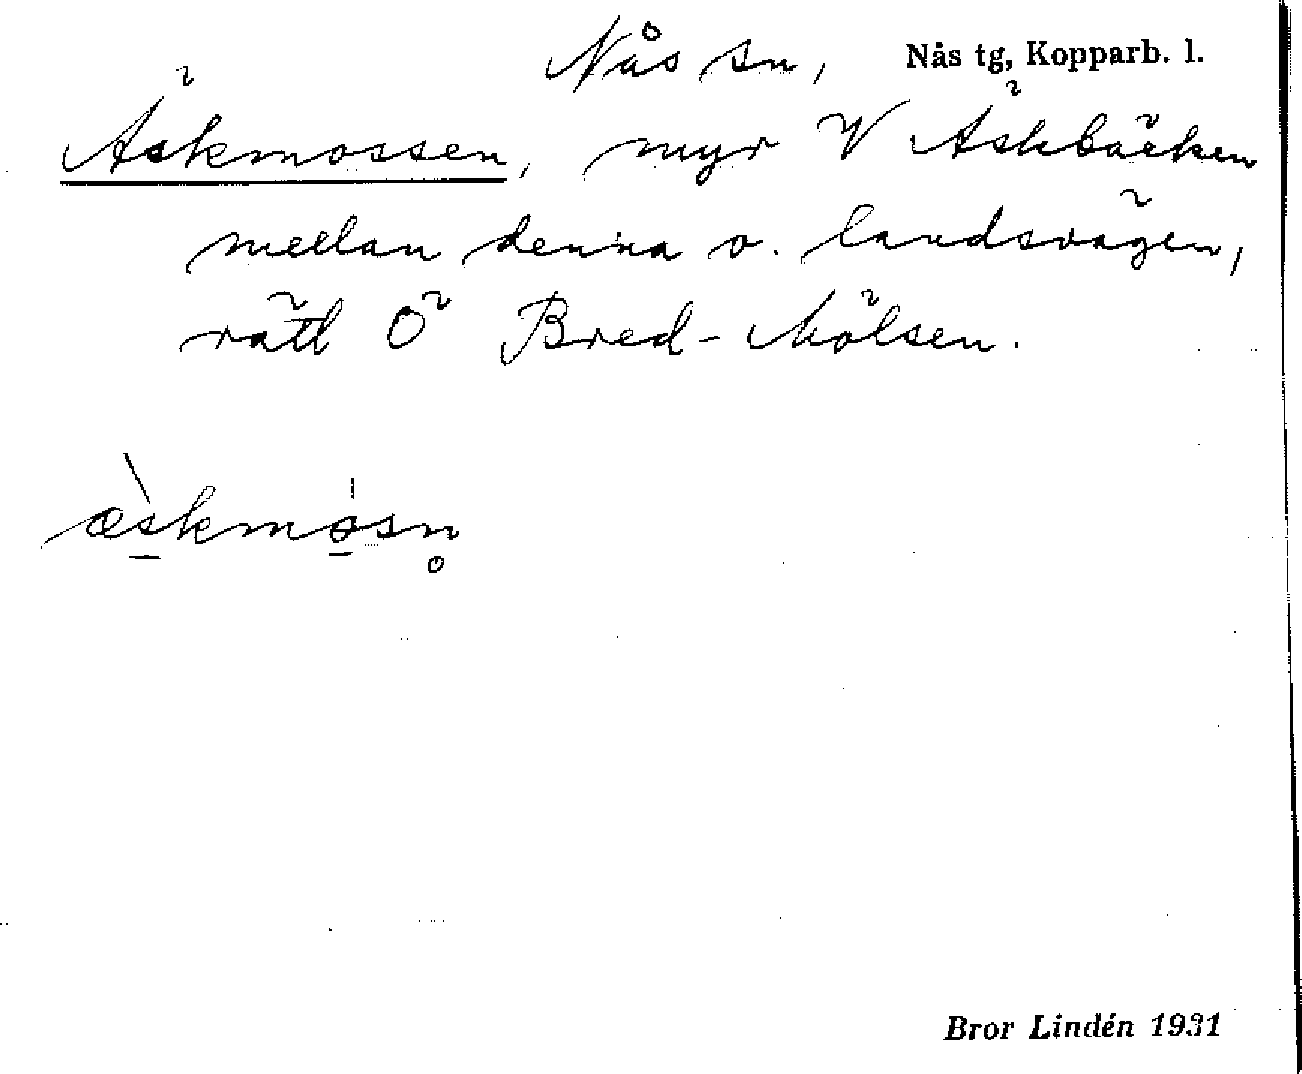 Nås sn, Nås tg, Kopparb. l.
Äskmossen, myr V Äskbäcken
mellan denna o. landsvägen,
rätt Ö Bred-Mölsen.
æ̀skmǫsn̥
Bror Lindén 1931